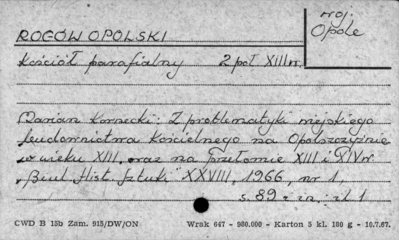 woj.
Opole
ROGÓW OPOLSKI
Kościół parafialny 2 poł XIII w.
Marian Kornecki: Z problematyki wiejskiego
budownictwa kościelnego na Opolszczyźnie
w wieku XIII, oraz na przełomie XIII i XIV w.
"Biul. Hist. Sztuki" XXVIII, 1966, nr 1,
s. 89 il 1
CWD B 15b Zam. 915/DW/ON Wrak 647 - 980.000 - Karton 5 kl. 180 g - 10.7.67.